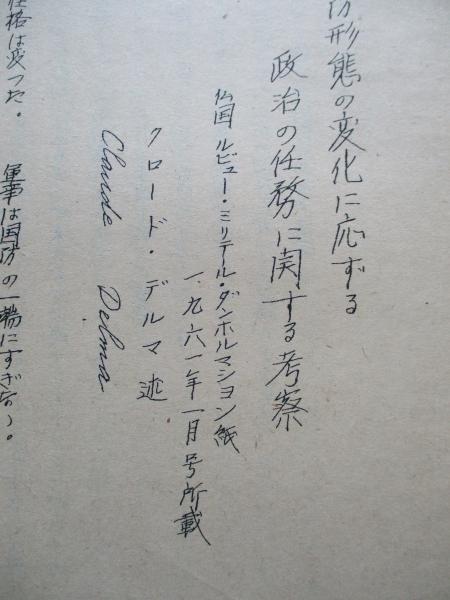 防形態の変化に応ずる
政治の任務に関する考察
仏国ルビュー・ミリテール・ダンホルマション紙
一九六一年一月号所載
クロード・デルマ述
Claude Delma
性格は変つた。 軍事は国防の一端にすぎない。